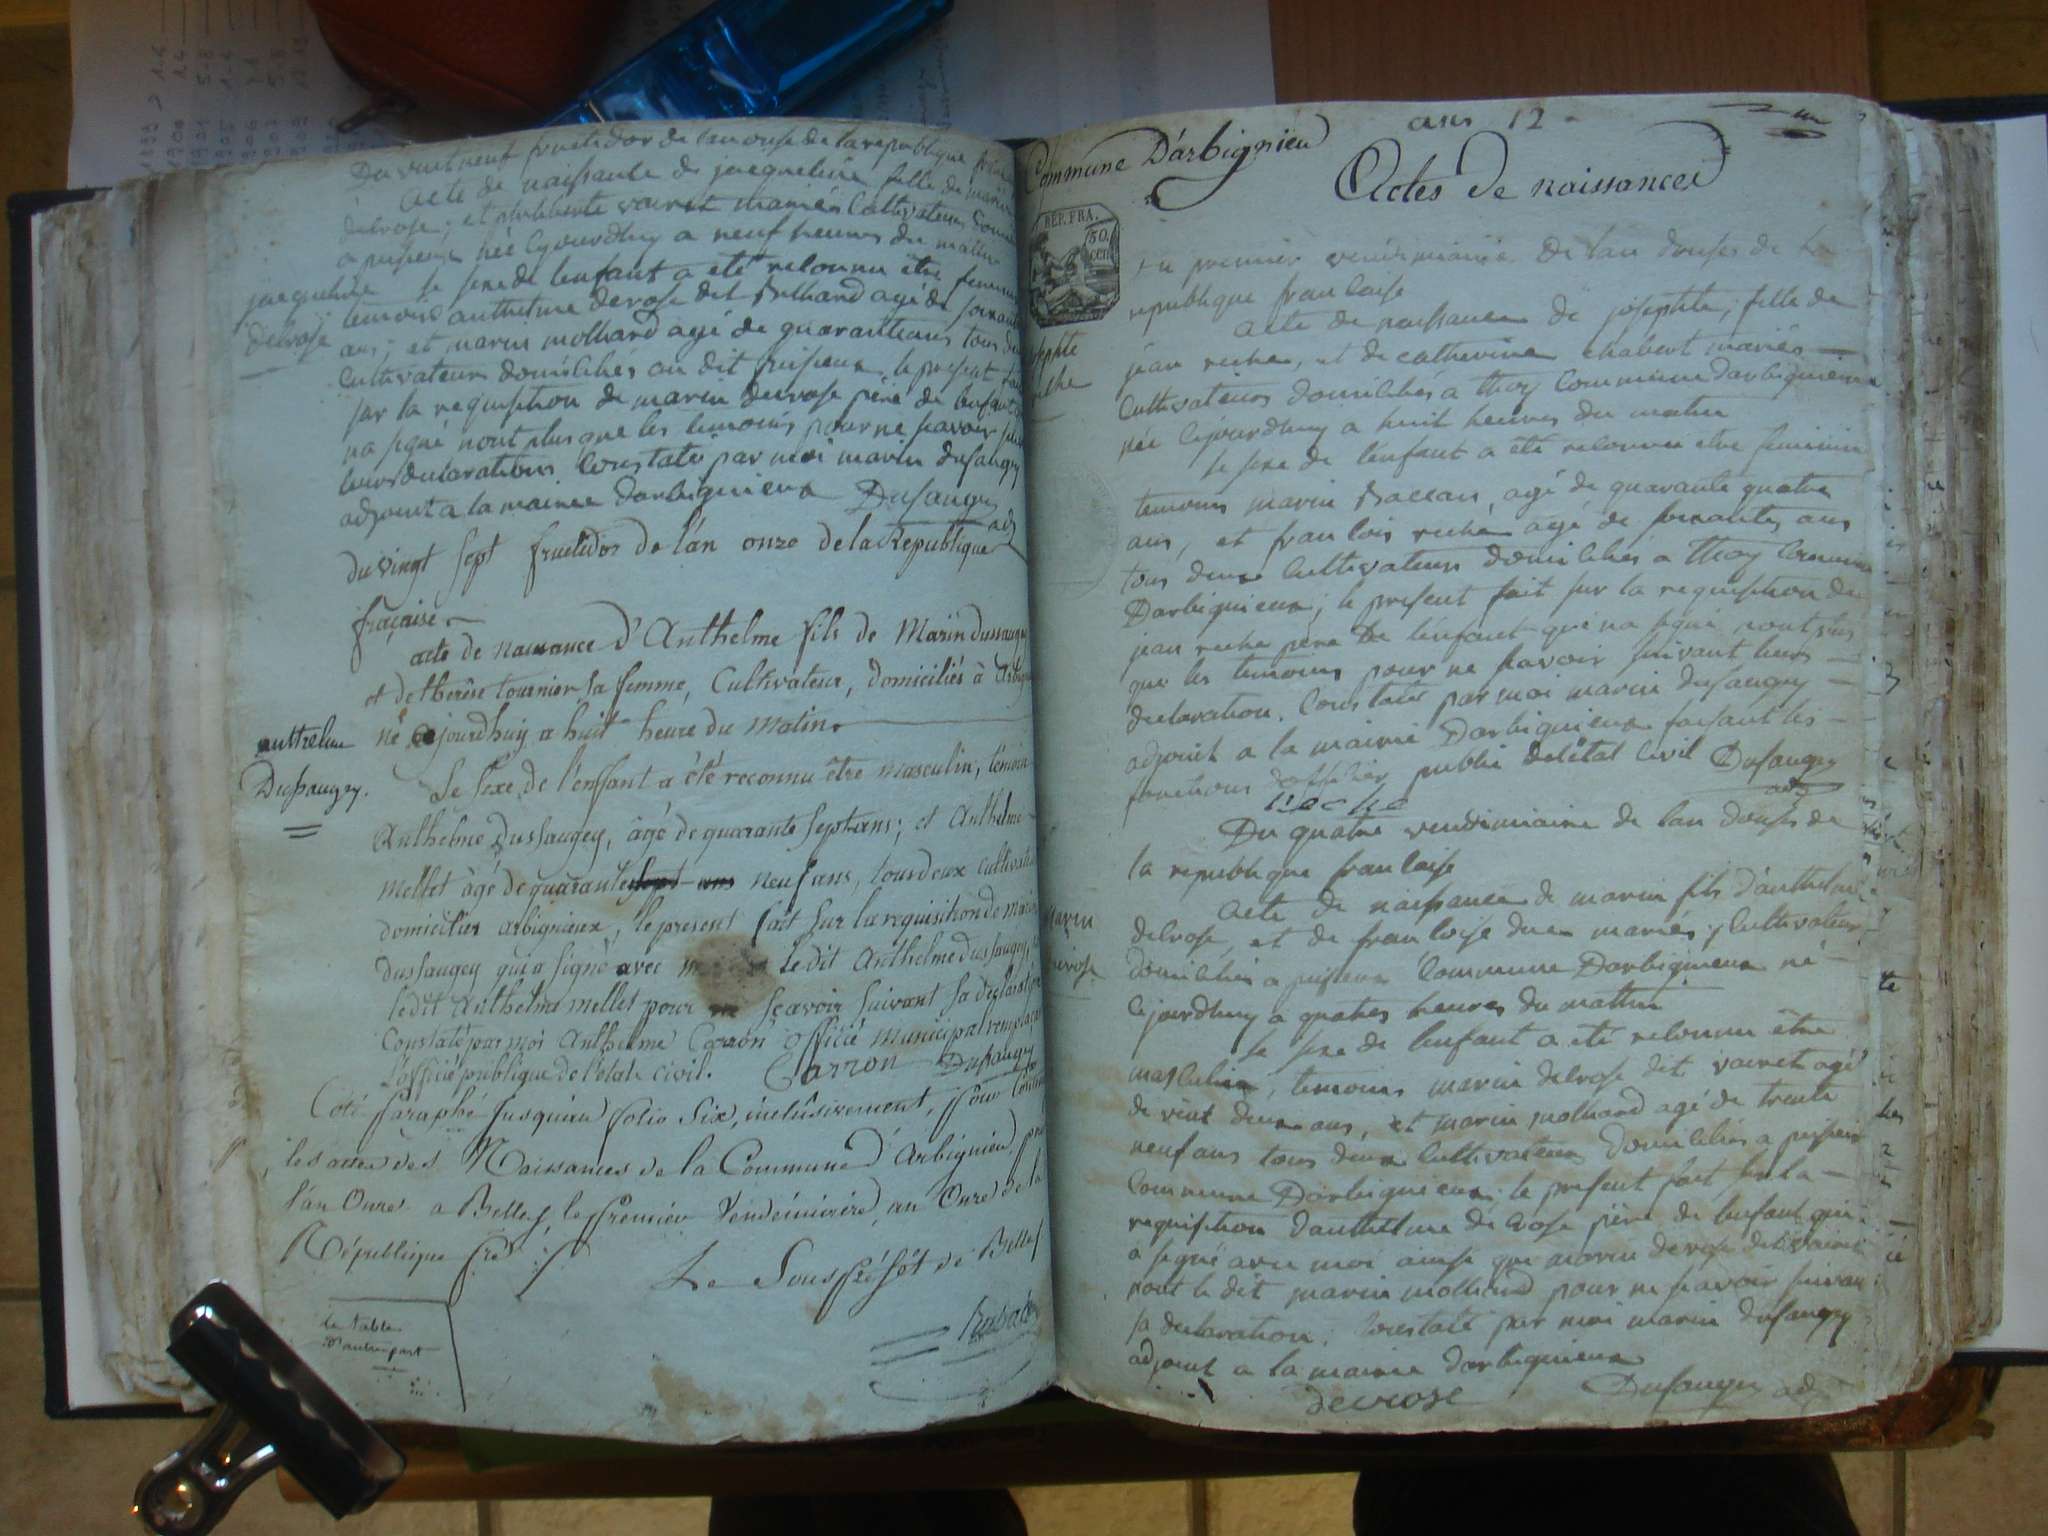 Du vint neuf fructidor de lan onse de la republique
Acte de naissance de jacqueline fille de marin
delrose; et philiberte vairet mariés Cultivateurs
a pusieux née Cejourdhuy a neuf heures du matin
jacqueline
delrose
le sexe de lenfant a été reconnu être
temoins anthelme derose dit Billiard agé de soixante
ans; et marin molliard agé de quarante ans tous
Cultivateurs domiciliés au dit pusieux le present
sur la requisition de marin derose père de lenfant
na signé nont plus que les temoins pour ne savoir
leurs declarations Constaté par moi marin dusaugey
adjoint a la mairie darbignieux Dusaugey
adj
du vingt sept fructidor de l'an onze de la Republique
fraçaise
acte de naissance d'Anthelme fils de Marin dussaugey
et de therèse tournier sa femme, Cultivateur, domiciliés à
né cejourdhuy a huit heure du matin
anthelme
Dussaugey.
Le sexe de l'enfant a été reconnu être masculin, témoin
Anthelme Dussaugey, âgé de quarante sept ans; et Anthelme
mellet âgé de quarante sept ans neuf ans, tous deux cultivat
domiciliés arbignieux, le present fait sur la requisition de
dussaugey qui a signé avec le dit Anthelme dussaugey,
le dit Anthelme mellet pour ne scavoir suivant sa declarat
Constaté par moi Anthelme Carron officié municipal remplaçant
l'officié publique de l'état civil. Carron Dusaugey
Coté paraphé jusquau folio Six, inclusivement, pour
les actes des Naissances de la Commune d'Arbignieu, pour
l'an Onze a Belley, le premier Vendémiaire, an Onze de la
République fse
Le Sous Préfet de Belley
la table
d'autre part
Commune D'arbignieu
ans 12
un
Actes de naissances
REP. FRA.
50
cen
du premier vendemiaire De lan douse de la
republique francaise
Acte de naissance de josephte, fille de
jean riche, et de catherine chabert mariés
Cultivateurs domiciliés a thoy Commune darbignieux
née Cejourdhuy a huit heures du matin
le sexe de l'enfant a été reconnu etre feminin
temoins marin Baccan, agé de quarante quatre
ans, et francois riche agé de soixantes ans
tous deux Cultivateurs domiciliés a thoy Commune
Darbignieux; le present fait sur la requisition de
jean riche père De lenfant que na signé nont plus
que les temoins pour ne savoir suivant leurs
declaration. Constaté par moi marin dusaugey
adjoint a la mairie Darbignieux faisant les
fonctions d'officier public deletat civil Dusaugey
adj
riche
Du quatre vendemiaire de lan douse de
la republique francaise
Acte de naissance de marin fils d'anthelme
delrose, et de francoise mariés; Cultivateurs,
domiciliés a pusieux Commune Darbignieux né
Cejourdhuy a quatres heures du mattin
marin
le sexe de lenfant a eté reconnu être
masculin, temoins marin delrose dit vairet agé
de vint deux ans, et marin molliard agé de trente
neuf ans tous deux Cultivateurs domiciliés a pusieux
Commune Darbignieux; le present fait sur la
requisition danthelme de rose père de lenfant qui
a signé avec moi ainsi que marin derose dit vairet
nont le dit marin molliard pour ne savoir suivan
sa declaration; Constaté par moi marin dusaugey
adjoint a la mairie darbignieux
derose Dusaugey adj